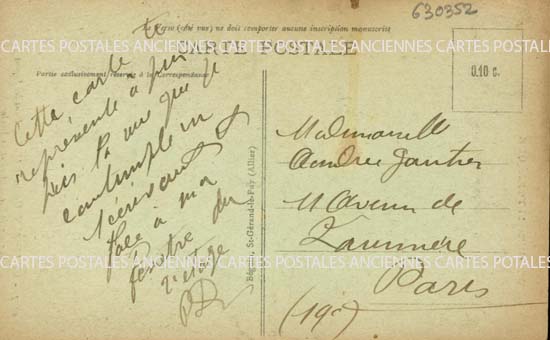 630352
Le Verso (côté vue) ne doit comporter aucune inscription manuscrite
CARTE POSTALE
ANCIENNES CARTES POSTALES ANCIENNES CARTES POSTALES ANCIENNES
Partie exclusivement réservée à la Correspondance
0.10 c.
Cette carte
représente à
la vue que je
contemple en
t'écrivant
face à ma
fenêtre du
2e étage
St-Gérand-le-Puy (Allier)
Mademoiselle
Andrée Gautier
11 Avenue de
Paris
CARTES POSTALES ANCIENNES CARTES POSTALES ANCIENNES CARTES POSTALES